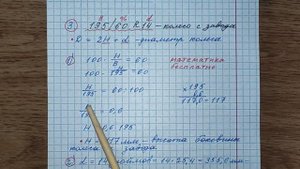 ③ 195/60 R14 - колесо с завода
• D = 2H + d - диаметр колеса
① 100 · H/B = 60
математика
бесплатно
100 · H/195 = 60
H/195 = 60 : 100
× 195
0,6
117,0 = 117
H/195 = 0,6
H = 0,6 · 195
• H = 117 мм - высота боковины
колеса с завода
② d = 14 дюймов = 14 · 25,4 = 355,6 мм -